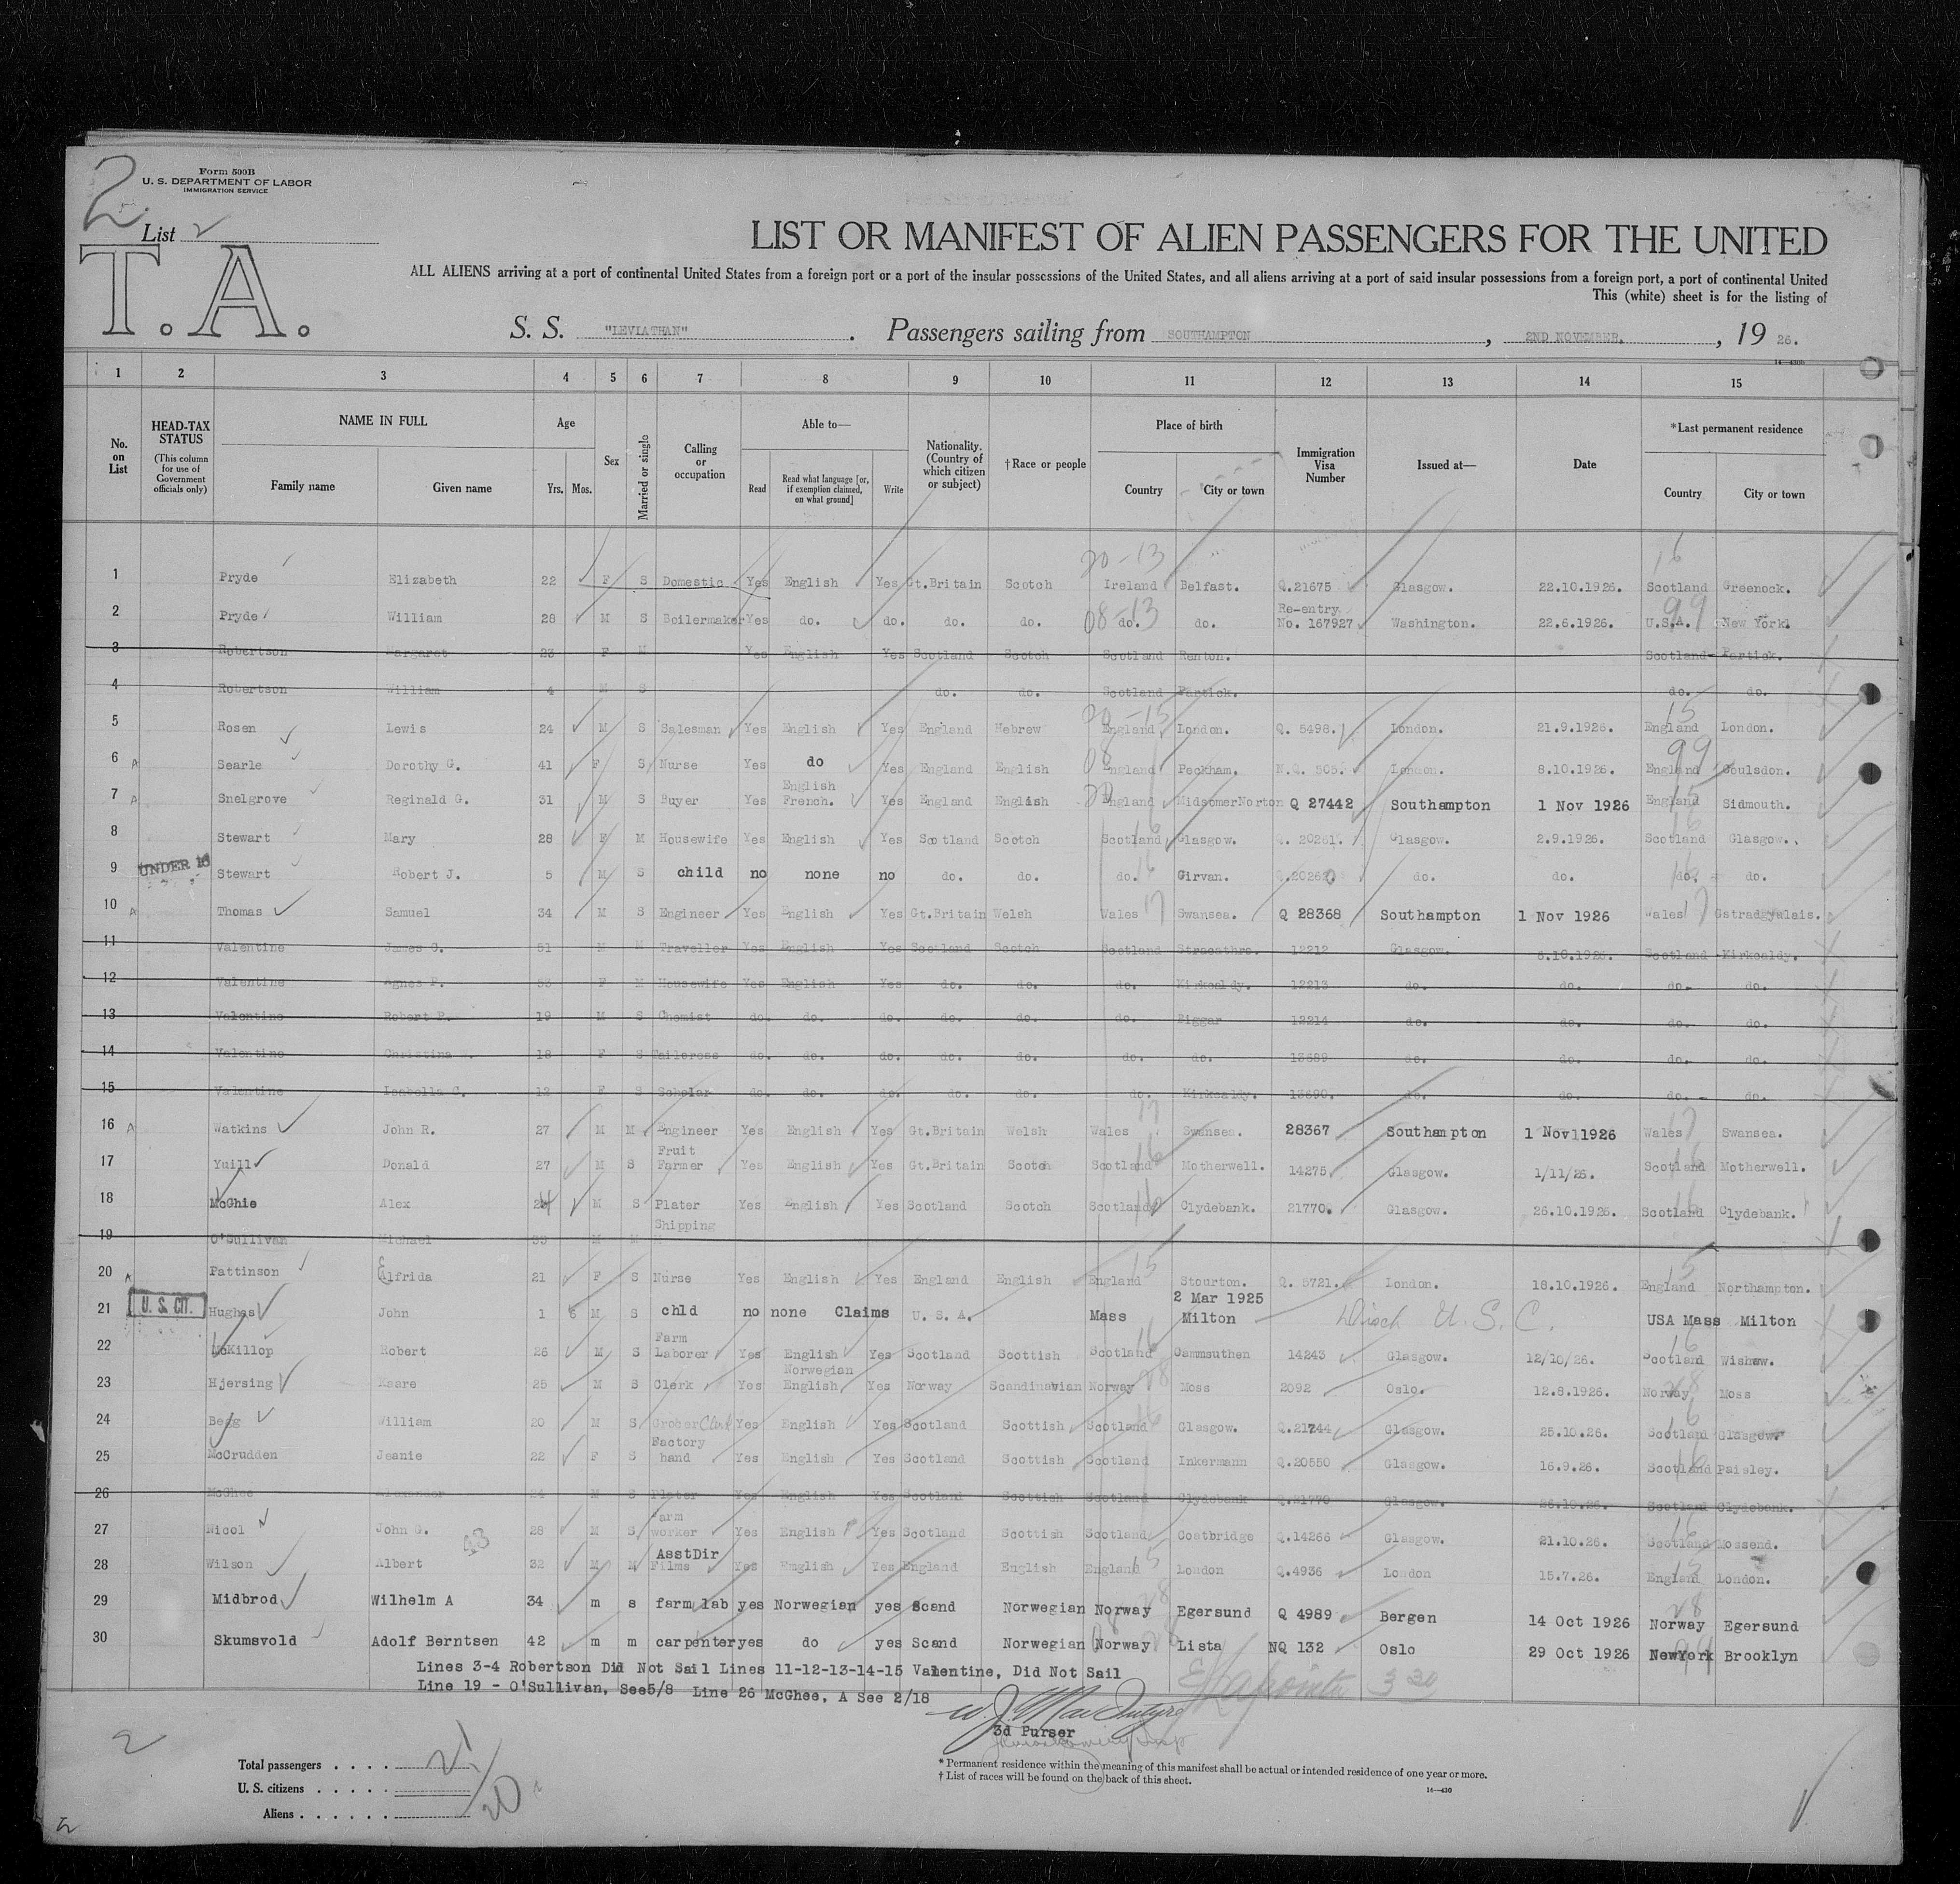 2
Form 500B
U. S. DEPARTMENT OF LABOR
IMMIGRATION SERVICE
List 2
T. A.
LIST OR MANIFEST OF ALIEN PASSENGERS FOR THE UNITED
ALL ALIENS arriving at a port of continental United States from a foreign port or a port of the insular possessions of the United States, and all aliens arriving at a port of said insular possessions from a foreign port, a port of continental United
This (white) sheet is for the listing of
S. S. "LEVIATHAN". Passengers sailing from SOUTHAMPTON, 2ND NOVEMBER., 19 26.
1 2 3 4 5 6 7 8 9 10 11 12 13 14 15
No. on List
HEAD-TAX STATUS (This column for use of Government officials only)
NAME IN FULL Family name Given name
Age Yrs. Mos.
Sex
Married or single
Calling or occupation
Able to— Read Read what language [or, if exemption claimed, on what ground] Write
Nationality. (Country of which citizen or subject)
†Race or people
Place of birth Country City or town
Immigration Visa Number
Issued at—
Date
*Last permanent residence Country City or town
1 Pryde Elizabeth 22 F S Domestic Yes English Yes Gt.Britain Scotch 20-13 Ireland Belfast. Q.21675 Glasgow. 22.10.1926. 16 Scotland Greenock.
2 Pryde William 28 M S Boilermaker Yes do. do. do. do. 08-13 do. do. Re-entry No. 167927 Washington. 22.6.1926. 99 U.S.A. New York.
3 Robertson Margaret 23 F M Yes English Yes Scotland Scotch Scotland Renton. Scotland Partick.
4 Robertson William 4 M S do. do. Scotland Partick. do. do.
5 Rosen Lewis 24 M S Salesman Yes English Yes England Hebrew 20-15 England London. Q. 5498. London. 21.9.1926. 15 England London.
6 A Searle Dorothy G. 41 F S Nurse Yes do Yes England English 08 England Peckham. N.Q. 505. London. 8.10.1926. 99 England Coulsdon.
7 A Snelgrove Reginald G. 31 M S Buyer Yes English French. Yes England English 20 England MidsomerNorton Q 27442 Southampton 1 Nov 1926 England 15 Sidmouth.
8 Stewart Mary 28 F M Housewife Yes English Yes Scotland Scotch Scotland 16 Glasgow. Q. 20261. Glasgow. 2.9.1926. Scotland 16 Glasgow.
9 UNDER 16 Stewart Robert J. 5 M S child no none no do. do. do. 16 Girvan. Q.20262 do. do. do. 16 do.
10 A Thomas Samuel 34 M S Engineer Yes English Yes Gt.Britain Welsh Wales 17 Swansea. Q 28368 Southampton 1 Nov 1926 Wales 17
11 Valentine James G. 51 M M Traveller Yes English Yes Scotland Scotch Scotland Stracathro. 12212 Glasgow. 6.10.1926. Scotland Kirkcaldy.
12 Valentine Agnes P. 53 F M Housewife Yes English Yes do. do. do. Kirkcaldy. 12213 do. do. do. do.
13 Valentine Robert P. 19 M S Chemist do. do. do. do. do. do. Biggar 12214 do. do. do. do.
14 Valentine Christina 18 F S Tailoress do. do. do. do. do. do. do. 13689 do. do. do. do.
15 Valentine Isabella C. 12 F S Scholar do. do. do. do. do. do. Kirkcaldy. 13690. do. do. do. do.
16 A Watkins John R. 27 M M Engineer Yes English Yes Gt.Britain Welsh Wales 17 Swansea. 28367 Southampton 1 Nov 1926 Wales 17 Swansea.
17 Yuill Donald 27 M S Fruit Farmer Yes English Yes Gt.Britain Scotch Scotland 16 Motherwell. 14275 Glasgow. 1/11/26. Scotland 16 Motherwell.
18 McGhie Alex 24 M S Plater Yes English Yes Scotland Scotch Scotland 16 Clydebank. 21770. Glasgow. 26.10.1926. Scotland 16 Clydebank.
19 O'Sullivan Michael 33 M M Shipping
20 A Pattinson Elfrida 21 F S Nurse Yes English Yes England English England 15 Stourton. Q. 5721. London. 18.10.1926. 15 England Northampton.
21 U. S. CIT. Hughes John 1 6 M S chld no none Claims U. S. A. Mass 2 Mar 1925 Milton U. S. C. USA Mass Milton
22 McKillop Robert 26 M S Farm Laborer Yes English Yes Scotland Scottish Scotland 16 Cammsuthen 14243 Glasgow. 12/10/26. 16 Scotland Wishaw.
23 Hjersing Kaare 25 M S Clerk Yes Norwegian English Yes Norway Scandinavian Norway 28 Moss 2092 Oslo. 12.8.1926. Norway 28 Moss
24 Begg William 20 M S Grocer Clerk Yes English Yes Scotland Scottish Scotland 16 Glasgow. Q.21744 Glasgow. 25.10.26. Scotland 16 Glasgow.
25 McCrudden Jeanie 22 F S Factory hand Yes English Yes Scotland Scottish Scotland Inkermann Q.20550 Glasgow. 16.9.26. Scotland 16 Paisley.
26 McGhee Alexander 24 M S Plater Yes English Yes Scotland Scottish Scotland Clydebank Q.21770 Glasgow. 26.10.26. Scotland Clydebank.
27 Nicol John G. 28 M S Farm worker Yes English Yes Scotland Scottish Scotland Coatbridge Q.14266 Glasgow. 21.10.26. 16 Scotland Mossend.
28 Wilson Albert 43 32 M M AsstDir Films Yes English Yes England English England 15 London Q.4936 London 15.7.26. England 15 London.
29 Midbrod Wilhelm A 34 m s farm lab yes Norwegian yes Scand Norwegian Norway 28 Egersund Q 4989 Bergen 14 Oct 1926 28 Norway Egersund
30 Skumsvold Adolf Berntsen 42 m m carpenter yes do yes Scand Norwegian 08 Norway 28 Lista NQ 132 Oslo 29 Oct 1926 NewYork 99 Brooklyn
Lines 3-4 Robertson Did Not Sail Lines 11-12-13-14-15 Valentine, Did Not Sail
Line 19 - O'Sullivan, See5/8 Line 26 McGhee, A See 2/18
3d Purser
2
Total passengers . . . . 21
U. S. citizens . . . . .
Aliens . . . . . . 20
* Permanent residence within the meaning of this manifest shall be actual or intended residence of one year or more.
† List of races will be found on the back of this sheet.
14—430